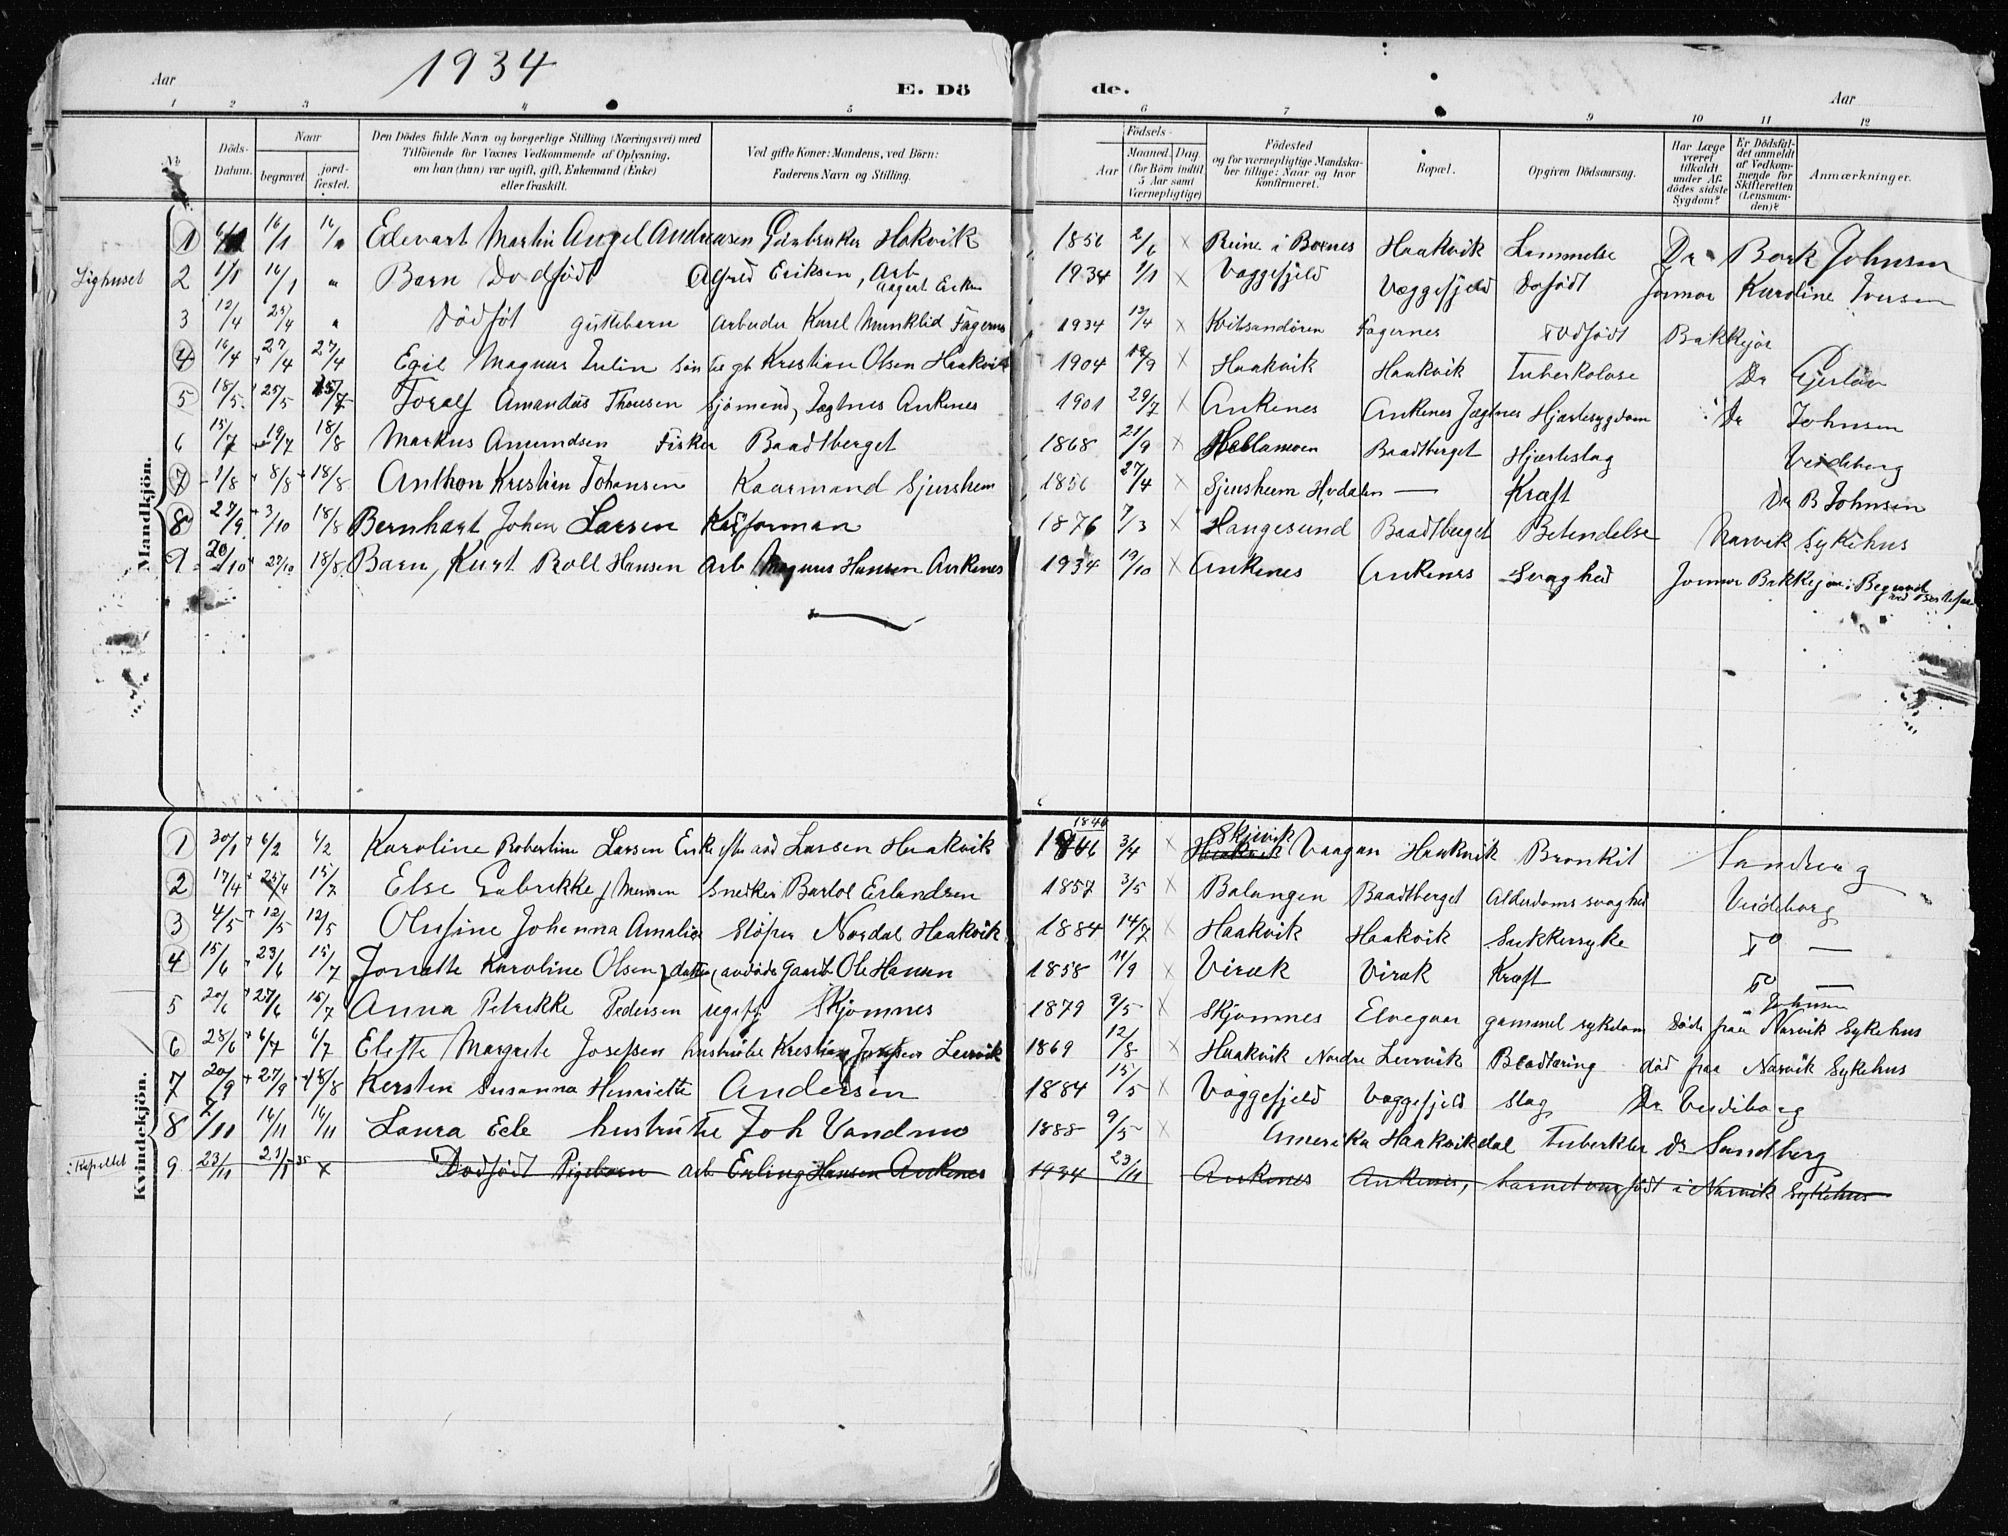 1934
Aar
E. Dö
de.
Aar
1 2 3 4 5 6 7 9 10 11 12
No
Döds-Datum.
Naar
begravet
jord-fæstet.
Den Dödes fulde Navn og borgerlige Stilling (Næringsvei) med Tilföiende for Voxnes Vedkommende af Oplysning, om han (hun) var ugift, gift, Enkemand (Enke) eller fraskilt.
Ved gifte Koner: Mandens, ved Börn: Faderens Navn og Stilling.
Födsels-
Aar
Maaned. Dag.
(for Börn indtil 5 Aar samt Værnepligtige)
Födested og for værnepligtige Mandska-ber tillige: Naar og hvor konfirmeret.
Bopæl.
Opgiven Dödsaarsag.
Har Læge været tilkaldt under Af-dödes sidste Sygdom?
Er Dödsfal-det anmeldt af Vedkom-mende for Skifteretten (Lensman-den)?
Anmærkninger.
Mandkjön.
1 16/1 Edevart Martin Angel Andreasen Hakvik 1856 2/6 x Reine i Haakvik Lammelse Dr Bork Johnsen
Lighuset 2 1/1 16/1 " Barn Dodfödt Alfred Eriksen, Arb 1934 1/1 x Vaggefjeld Væggefjeld Dofödt Jormor Karoline Iversen
3 12/4 25/4 " Dödföt guttebarn Arbeider Karel Munklid Fagernes 1934 12/4 x Fagernes Dodfödt Bakkejor
4 16/4 + 27/4 27/4 Egil Magnus Julin sön Kristian Olsen Haakvik 1904 19/9 x Haakvik Haakvik Tuberkolose Dr
5 18/5 + 25/5 Toralf Amandus Thoresen Sjömend, Jægtnes Ankenes 1901 29/7 x Ankenes Ankenes Jægtnes Hjærtesygdom Dr Johnsen
6 15/7 + 19/7 18/8 Markus Amundsen Fisker Baadtberget 1868 21/9 x Baadtberget Hjærteslag Veideborg
7 1/8 + 8/8 + 18/8 Anthon Kristian Johansen Kaarmand Sjursheim 1856 27/4 x Sjursheim — Kræft Dr B Johnsen
8 27/9 + 3/10 18/8 Bernhart Johan Larsen 1876 7/3 x Haugesund Baadtberget Betendelse Narvik Sykehus
9 20/10 + 27/10 18/8 Barn, Kurt Roll Hansen Arb Magnus Hansen Ankenes 1934 19/10 x Ankenes Ankenes Svaghed Jormor Bakkejor
Kvindekjön.
1 30/1 + 6/2 6/2 Karoline Robertine Larsen Enke efter Larsen Haakvik 1846 3/4 x Skjevik Vaagan Haakvik Bronkit Sandberg
2 17/4 + 25/4 15/7 Else Gabrikke Snedker Bartol Erlandsen 1857 3/5 x Balangen Baadtberget Alderdoms svaghed Veideborg
3 4/5 + 12/5 12/5 Olufine Johanna Amalia Nordal Haakvik 1884 14/7 x Haakvik Haakvik Sukkersyke Do —
4 15/6 + 23/6 15/7 Jonette Karoline Olsen, datter (avdöde gaardb Ole Hansen 1858 11/9 x Virak Virak Kræft Do —
5 20/6 + 27/6 15/7 Anna Petrikke Pedersen ugift Skjomnes 1879 9/5 x Skjomnes Elvegaar gammel sykdom Döde fraa Narvik Sykehus Johnsen
6 28/6 + 6/7 6/7 Margrete Josefsen hustru til Kristian Josefsen Leirvik 1869 12/8 x Haakvik Nordre Leirvik Blodtæring död fraa Narvik Sykehus
7 20/9 + 27/9 18/8 Kersten Susanna Henriette Andersen 1884 15/5 x Vaggefjeld Vaggefjeld Slag Dr Veideborg
8 7/11 16/11 16/11 Laura Ele hustru til Joh Vandmo 1888 9/5 x Amerika Haakvikdal Tuberkler Dr Sandberg
i Kapellet 9 23/11 x Dodfödt Pigebarn arb Erling Hansen Ankenes 1934 23/11 Ankenes Ankenes, barnet var födt i Narvik Sykehus